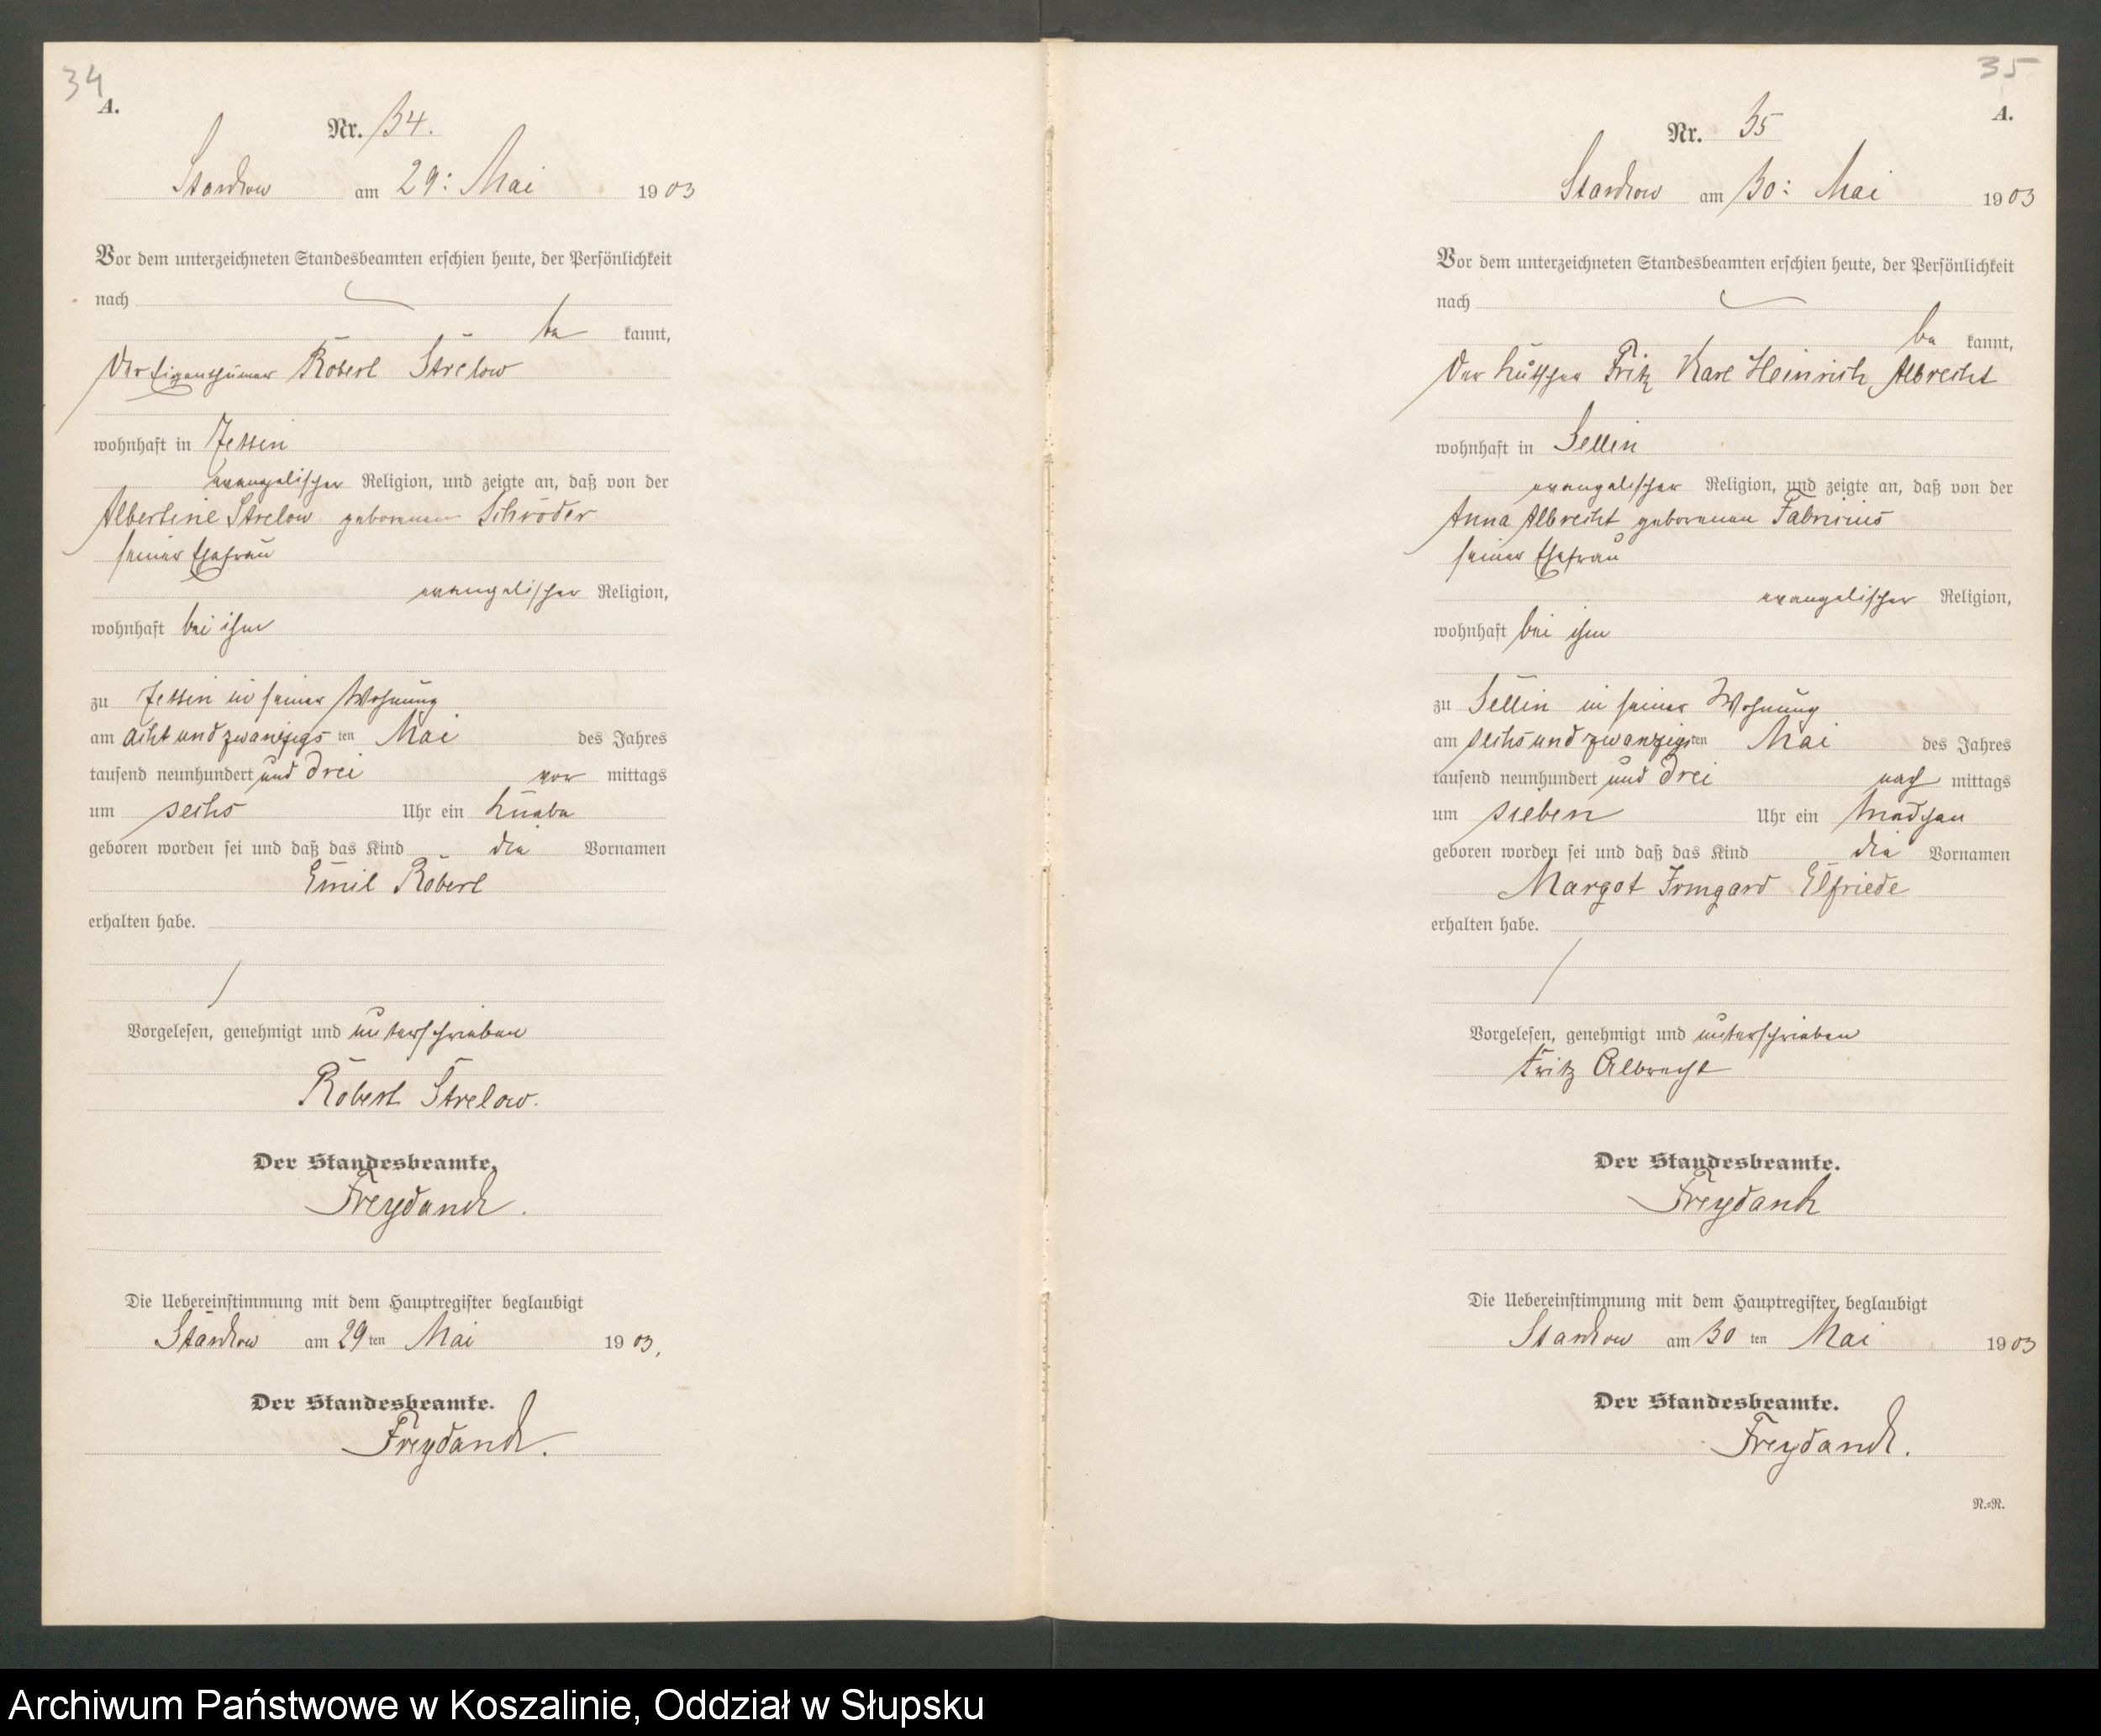 34
A.
Nr. 34.
Stantow am 29: Mai 1903
Vor dem unterzeichneten Standesbeamten erschien heute, der Persönlichkeit
nach
be kannt,
Der Eigenthümer Robert Strelow
wohnhaft in Jettin
evangelischer Religion, und zeigte an, daß von der
Albertine Strelow geborenen Schröder
seiner Ehefrau
evangelischer Religion,
wohnhaft bei ihm
zu Jettin in seiner Wohnung
am acht und zwanzigs ten Mai des Jahres
tausend neunhundert und drei vor mittags
um sechs Uhr ein Knabe
geboren worden sei und daß das Kind die Vornamen
Emil Robert
erhalten habe.
Vorgelesen, genehmigt und unterschrieben
Robert Strelow.
Der Standesbeamte.
Freydanck.
Die Uebereinstimmung mit dem Hauptregister beglaubigt
am 29 ten Mai 1903.
Der Standesbeamte.
Freydanck.
35
A.
Nr. 35
am 30: Mai 1903
Vor dem unterzeichneten Standesbeamten erschien heute, der Persönlichkeit
nach
be kannt,
Der Kutscher Fritz Karl Heinrich Albrecht
wohnhaft in Sellin
evangelischer Religion, und zeigte an, daß von der
Anna Albrecht geborenen Fabricius
seiner Ehefrau
evangelischer Religion,
wohnhaft bei ihm
zu Sellin in seiner Wohnung
am sechs und zwanzigsten Mai des Jahres
tausend neunhundert und drei nach mittags
um sieben Uhr ein Mädchen
geboren worden sei und daß das Kind die Vornamen
Margot Irmgard Elfriede
erhalten habe.
Vorgelesen, genehmigt und unterschrieben
Fritz Albrecht
Der Standesbeamte.
Freydanck
Die Uebereinstimmung mit dem Hauptregister beglaubigt
am 30 ten Mai 1903
Der Standesbeamte.
Freydanck.
N.=N.
Archiwum Państwowe w Koszalinie, Oddział w Słupsku